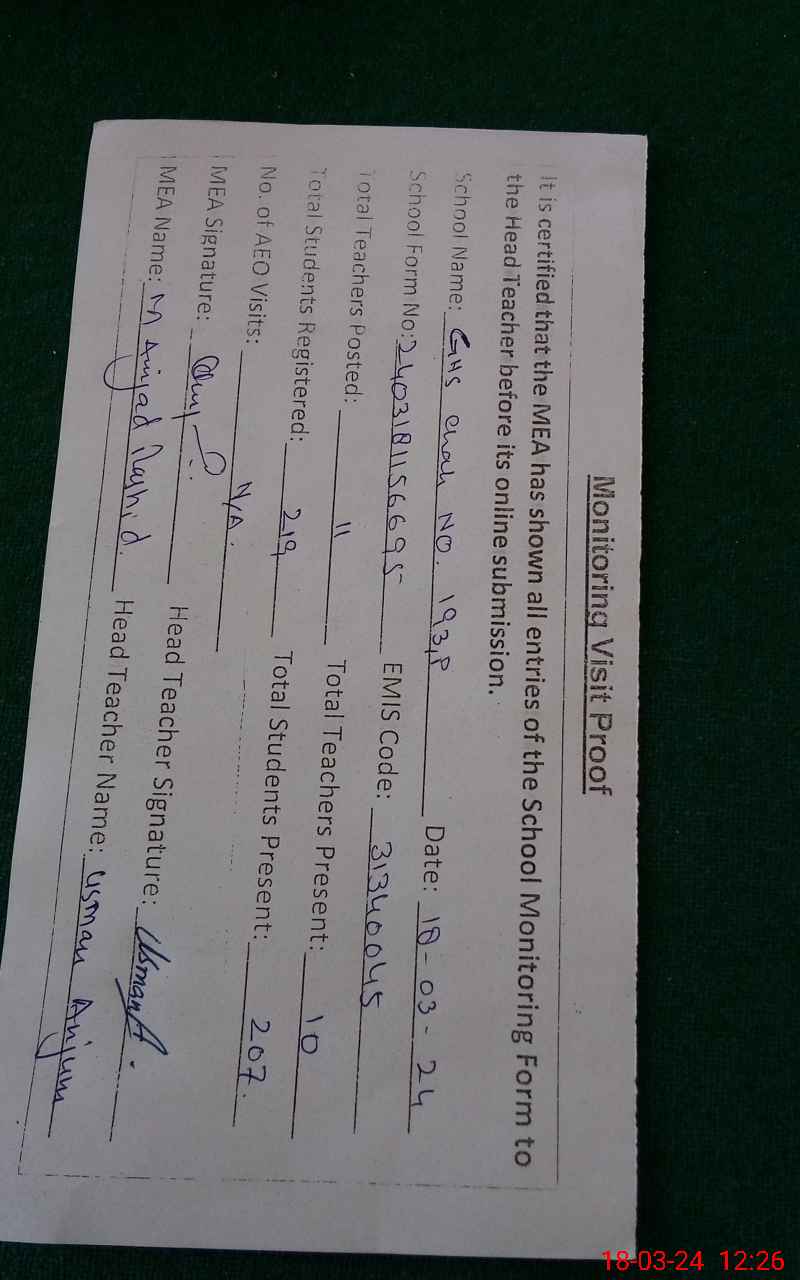 Monitoring Visit Proof
It is certified that the MEA has shown all entries of the School Monitoring Form to
the Head Teacher before its online submission.
School Name: GHS Chak NO. 193,P Date: 18-03-24
School Form No: 2403181156695 EMIS Code: 31340045
Total Teachers Posted: 11 Total Teachers Present: 10
Total Students Registered: 219 Total Students Present: 207.
No. of AEO Visits: N/A.
MEA Signature: Head Teacher Signature: Usman A.
MEA Name: M Amjad Rashid. Head Teacher Name: Usman Anjum
18-03-24 12:26